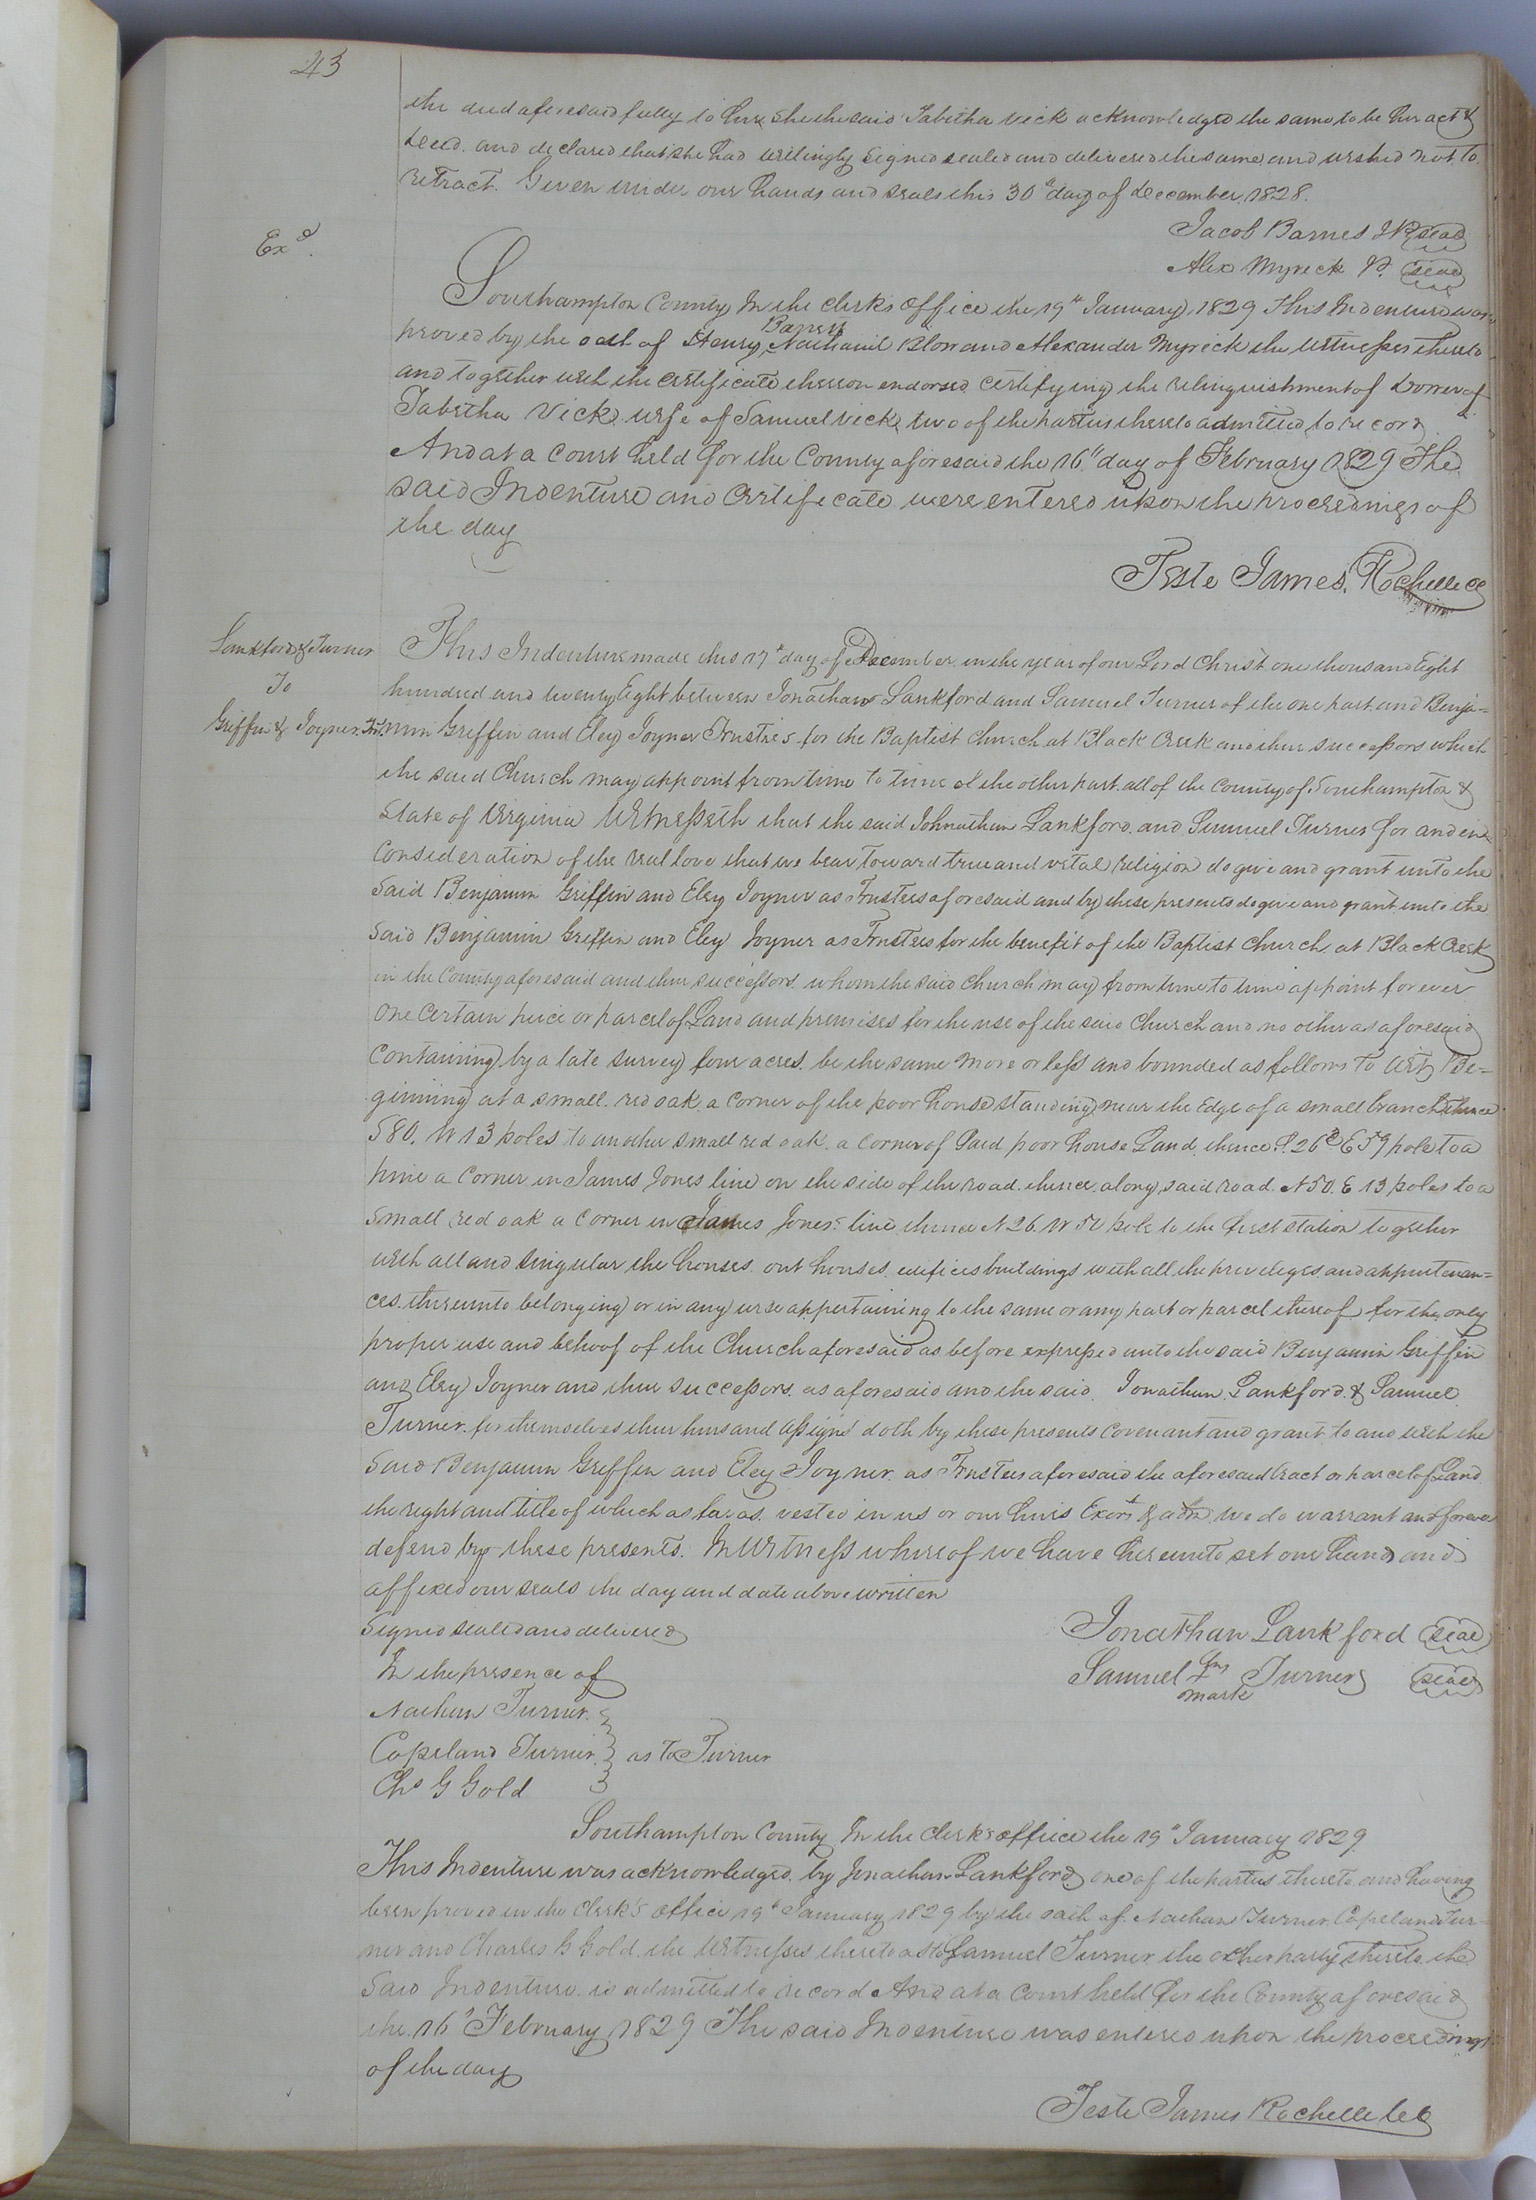 43
the deed aforesaid fully to her, she the said Tabitha Vick acknowledged the same to be her act &
deed. and declared that she had willingly signed sealed and delivered the same and wished not to
retract. Given under our hands and seals this 30th day of december, 1828.
Jacob Barnes JP seal
Exd.
Alex Myrick JP. seal
Southampton County In the clerks office the 19th January, 1829 This Indenture was
Barnes
proved by the oath of Henry, Nathaniel Blow and Alexander Myrick the witnesses thereto
and together with the certificate thereon endorsed certifying the relinquishment of Dower of
Tabitha Vick wife of Samuel Vick, two of the parties thereto admitted to record
And at a court held for the County aforesaid the 16th day of February 1829 The
said Indenture and Certificate were entered upon the proceedings of
the day
Teste James Rochelle CC
Lankford & Turner
To
Griffin & Joyner. Trt.
This Indenture made this 17th day of December in the year of our Lord Christ one thousand Eight
hundred and twenty Eight between Jonathan Lankford and Samuel Turner of the one part and Benja=
min Griffin and Eley Joyner Trustees for the Baptist Church at Black Creek and their successors which
the said Church may appoint from time to time of the other part all of the County of Southampton &
State of Virginia Witnesseth that the said Johnathan Lankford. and Samuel Turner for and in
Consideration of the real love that we bear toward true and vital religion do give and grant unto the
Said Benjamin Griffin and Eley Joyner as Trustees aforesaid and by these presents do give and grant unto the
Said Benjamin Griffin and Eley Joyner as Trustees for the benefit of the Baptist Church at Black Creek
in the County aforesaid and their successors. whom the said Church may from time to time appoint for ever
One Certain piece or parcel of Land and premises for the use of the said Church and no other as aforesaid
Containing by a late survey four acres. be the same more or less and bounded as follows to wit, Be=
ginning at a small. red oak a corner of the poor house standing near the Edge of a small branch thence
S80. W 13 poles to another small red oak. a corner of said poor house Land, thence S. 26 E 59 pole to a
pine a corner in James Jones line on the side of the road. thence along said road. N50. E 13 poles to a
small red oak a corner in James Jones' line thence N26. W 50 pole to the first station together
with all and singular the houses. out houses. edifices buildings with all the priveleges and appurtenan=
ces. thereunto belonging or in any wise appertaining to the same or any part or parcel thereof for the only
proper use and behoof of the Church aforesaid as before expressed unto the said Benjamin Griffin
and Eley Joyner and their successors. as aforesaid and the said. Jonathan. Lankford. & Samuel.
Turner. for themselves their heirs and Assigns doth by these presents covenant and grant to and with the
Said Benjamin Griffin and Eley Joyner. as Trustees aforesaid the aforesaid tract or parcel of Land
the right and title of which as far as. vested in us or our heirs Exors & adm. we do warrant and forever
defend by these presents. In Witness whereof we have hereunto set our hands and
affixed our seals the day and date above written
Signed sealed and delivered
Jonathan Lankford seal
In the presence of
Samuel his Turner seal
mark
Nathan Turner.
Copeland Turner. } as to Turner
Chs G Gold
Southampton County In the Clerk's office the 19th January 1829.
This Indenture was acknowledged. by Jonathan Lankford one of the parties thereto. and having
been proved in the Clerk's office 19th January 1829 by the oath of. Nathan Turner. Copeland Tur-
ner and Charles G Gold. the Witnesses thereto as to Samuel Turner the other party thereto. the
Said Indenture. is admitted to record And at a Court held for the County aforesaid
the 16th February 1829 The said Indenture was entered upon the proceedings
of the day
Teste James Rochelle CC